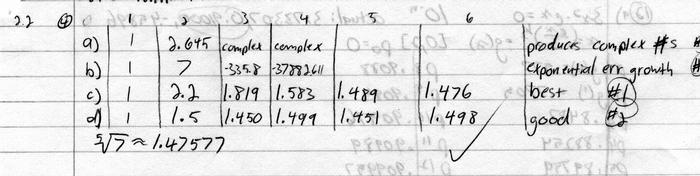 2.2 ④ 1 2 3 4 5 6
a) 1 2.645 complex complex produces complex #s
b) 1 7 -335.8 -37882611 exponential err growth
c) 1 2.2 1.819 1.583 1.489 1.476 best #1
d) 1 1.5 1.450 1.499 1.451 1.498 good #2
⁵√7 ≈ 1.47577